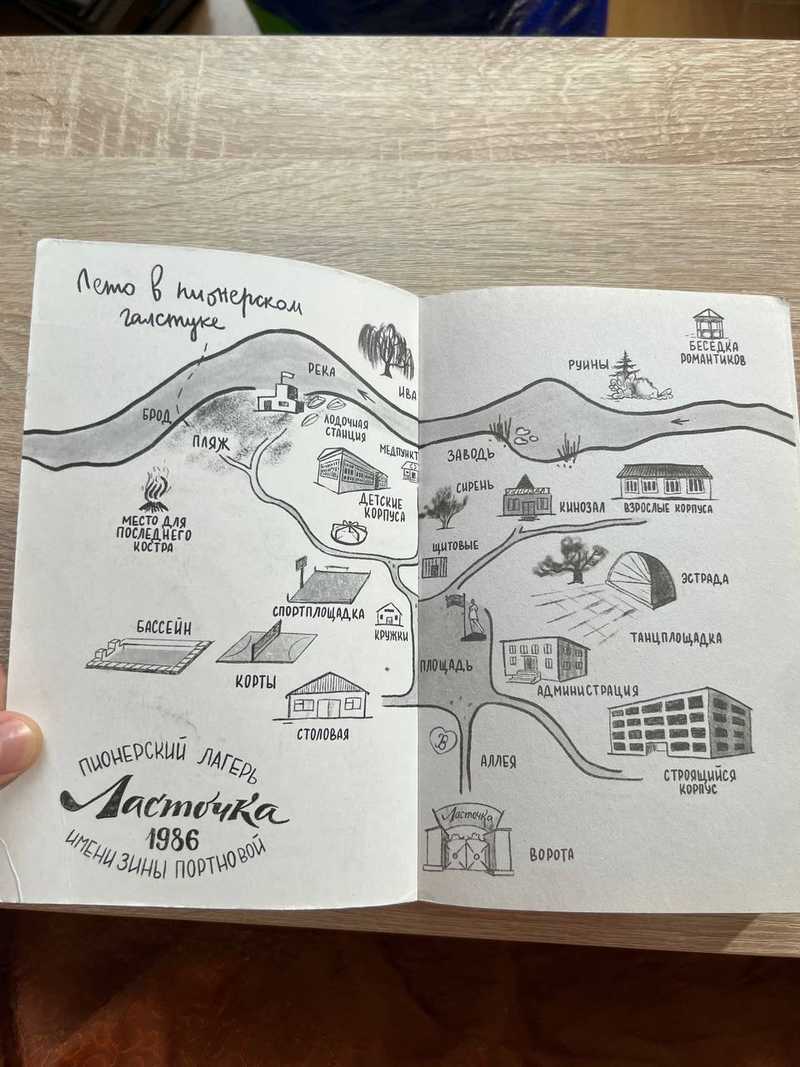 Лето в пионерском
галстуке
РЕКА
ИВА
БРОД
ПЛЯЖ
ЛОДОЧНАЯ
СТАНЦИЯ
МЕДПУНКТ
ДЕТСКИЕ
КОРПУСА
МЕСТО ДЛЯ
ПОСЛЕДНЕГО
КОСТРА
СПОРТПЛОЩАДКА
КРУЖКИ
БАССЕЙН
КОРТЫ
СТОЛОВАЯ
ПИОНЕРСКИЙ ЛАГЕРЬ
Ласточка
1986
ИМЕНИ ЗИНЫ ПОРТНОВОЙ
БЕСЕДКА
РОМАНТИКОВ
РУИНЫ
ЗАВОДЬ
СИРЕНЬ
КИНОЗАЛ
КИНОЗАЛ
ВЗРОСЛЫЕ КОРПУСА
ЩИТОВЫЕ
ЭСТРАДА
ТАНЦПЛОЩАДКА
ПЛОЩАДЬ
АДМИНИСТРАЦИЯ
СТРОЯЩИЙСЯ
КОРПУС
АЛЛЕЯ
Ласточка
ВОРОТА